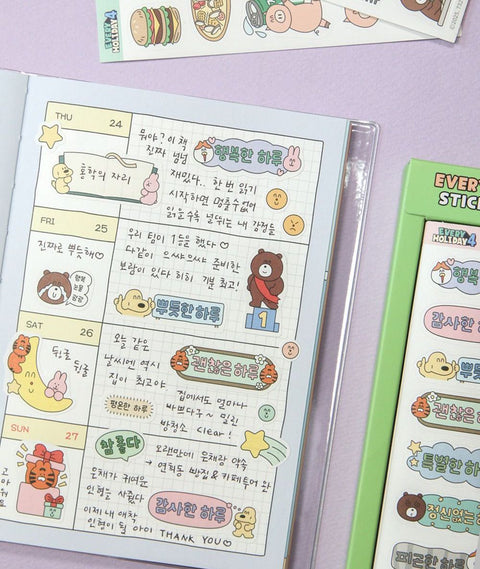 EVERY
HOLIDAY 4
THU 24
뭐야? 이 책
진짜 넘넘
행복한 하루
재밌다.. 한 번 읽기
시작하면 멈출수없어
읽을수록 널뛰는 내 감정들
문학의 자리
FRI 25
진짜로 뿌듯해♡
우리 팀이 1등을 했다♡
다같이 으쌰으쌰 준비한
보람이 있다 히히 기분 최고!
뿌듯한 하루
1
SAT 26
뒹굴
뒹굴
오늘 같은
날씨엔 역시
집이 최고야
괜찮은 하루
평온한 하루
집에서도 얼마나
바쁘다구~ 밀린
방청소 clear!
SUN 27
참 좋다
오랜만에 은채랑 약속
→ 연희동 빵집 & 카페투어
은채가 귀여운
인형을 사줬다
이제 내 애착
인형이 될 아이 THANK YOU♡
감사한 하루
EVERY
STIC
EVERY
HOLIDAY 4
행복
감사한
뿌듯
괜찮은
특별한 하
정신없는
피곤한 하